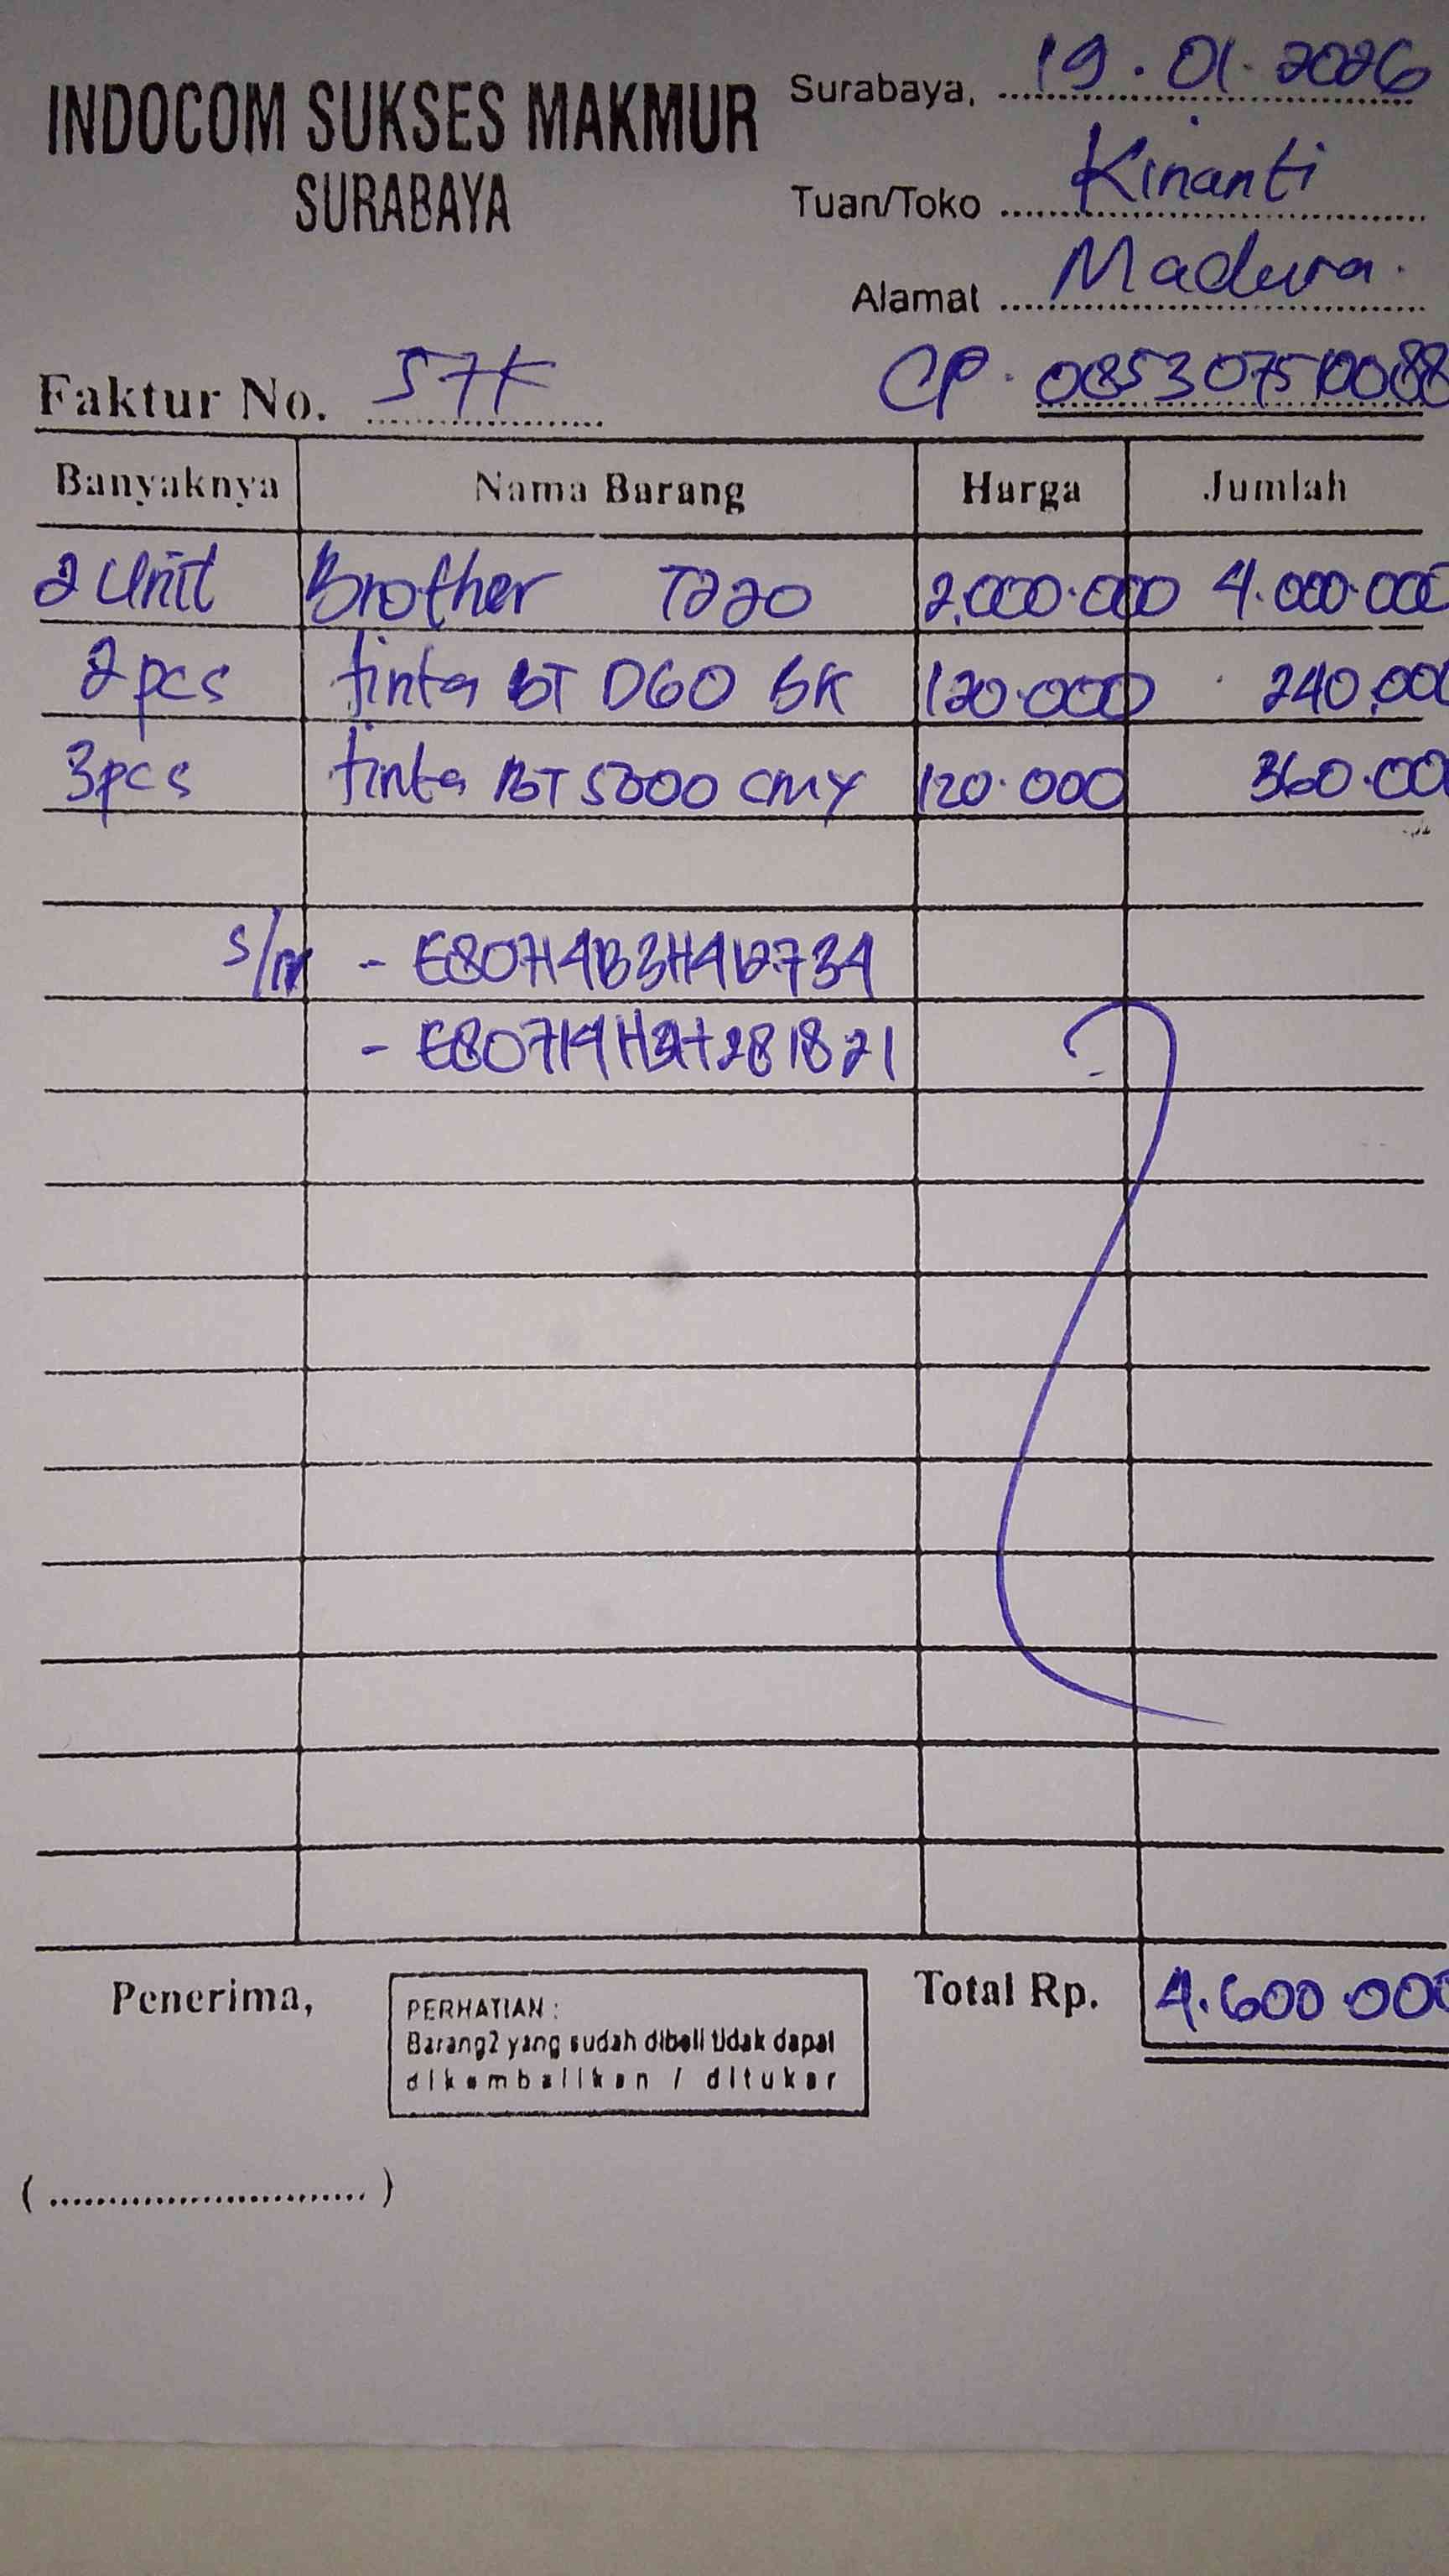 INDOCOM SUKSES MAKMUR
SURABAYA
Surabaya, 19.01.2026
Tuan/Toko Kinanti
Alamat Madura.
Faktur No. STK CP. 085307510088
Banyaknya Nama Barang Harga Jumlah
2 Unit Brother T220 2.000.000 4.000.000
2 pcs tinta BT D60 BK 120.000 240.000
3 pcs tinta BT 5000 CMY 120.000 360.000
s/n -
-
Penerima,
PERHATIAN :
Barang2 yang sudah dibeli tidak dapat
dikembalikan / ditukar
Total Rp. 4.600.000
(..........................)